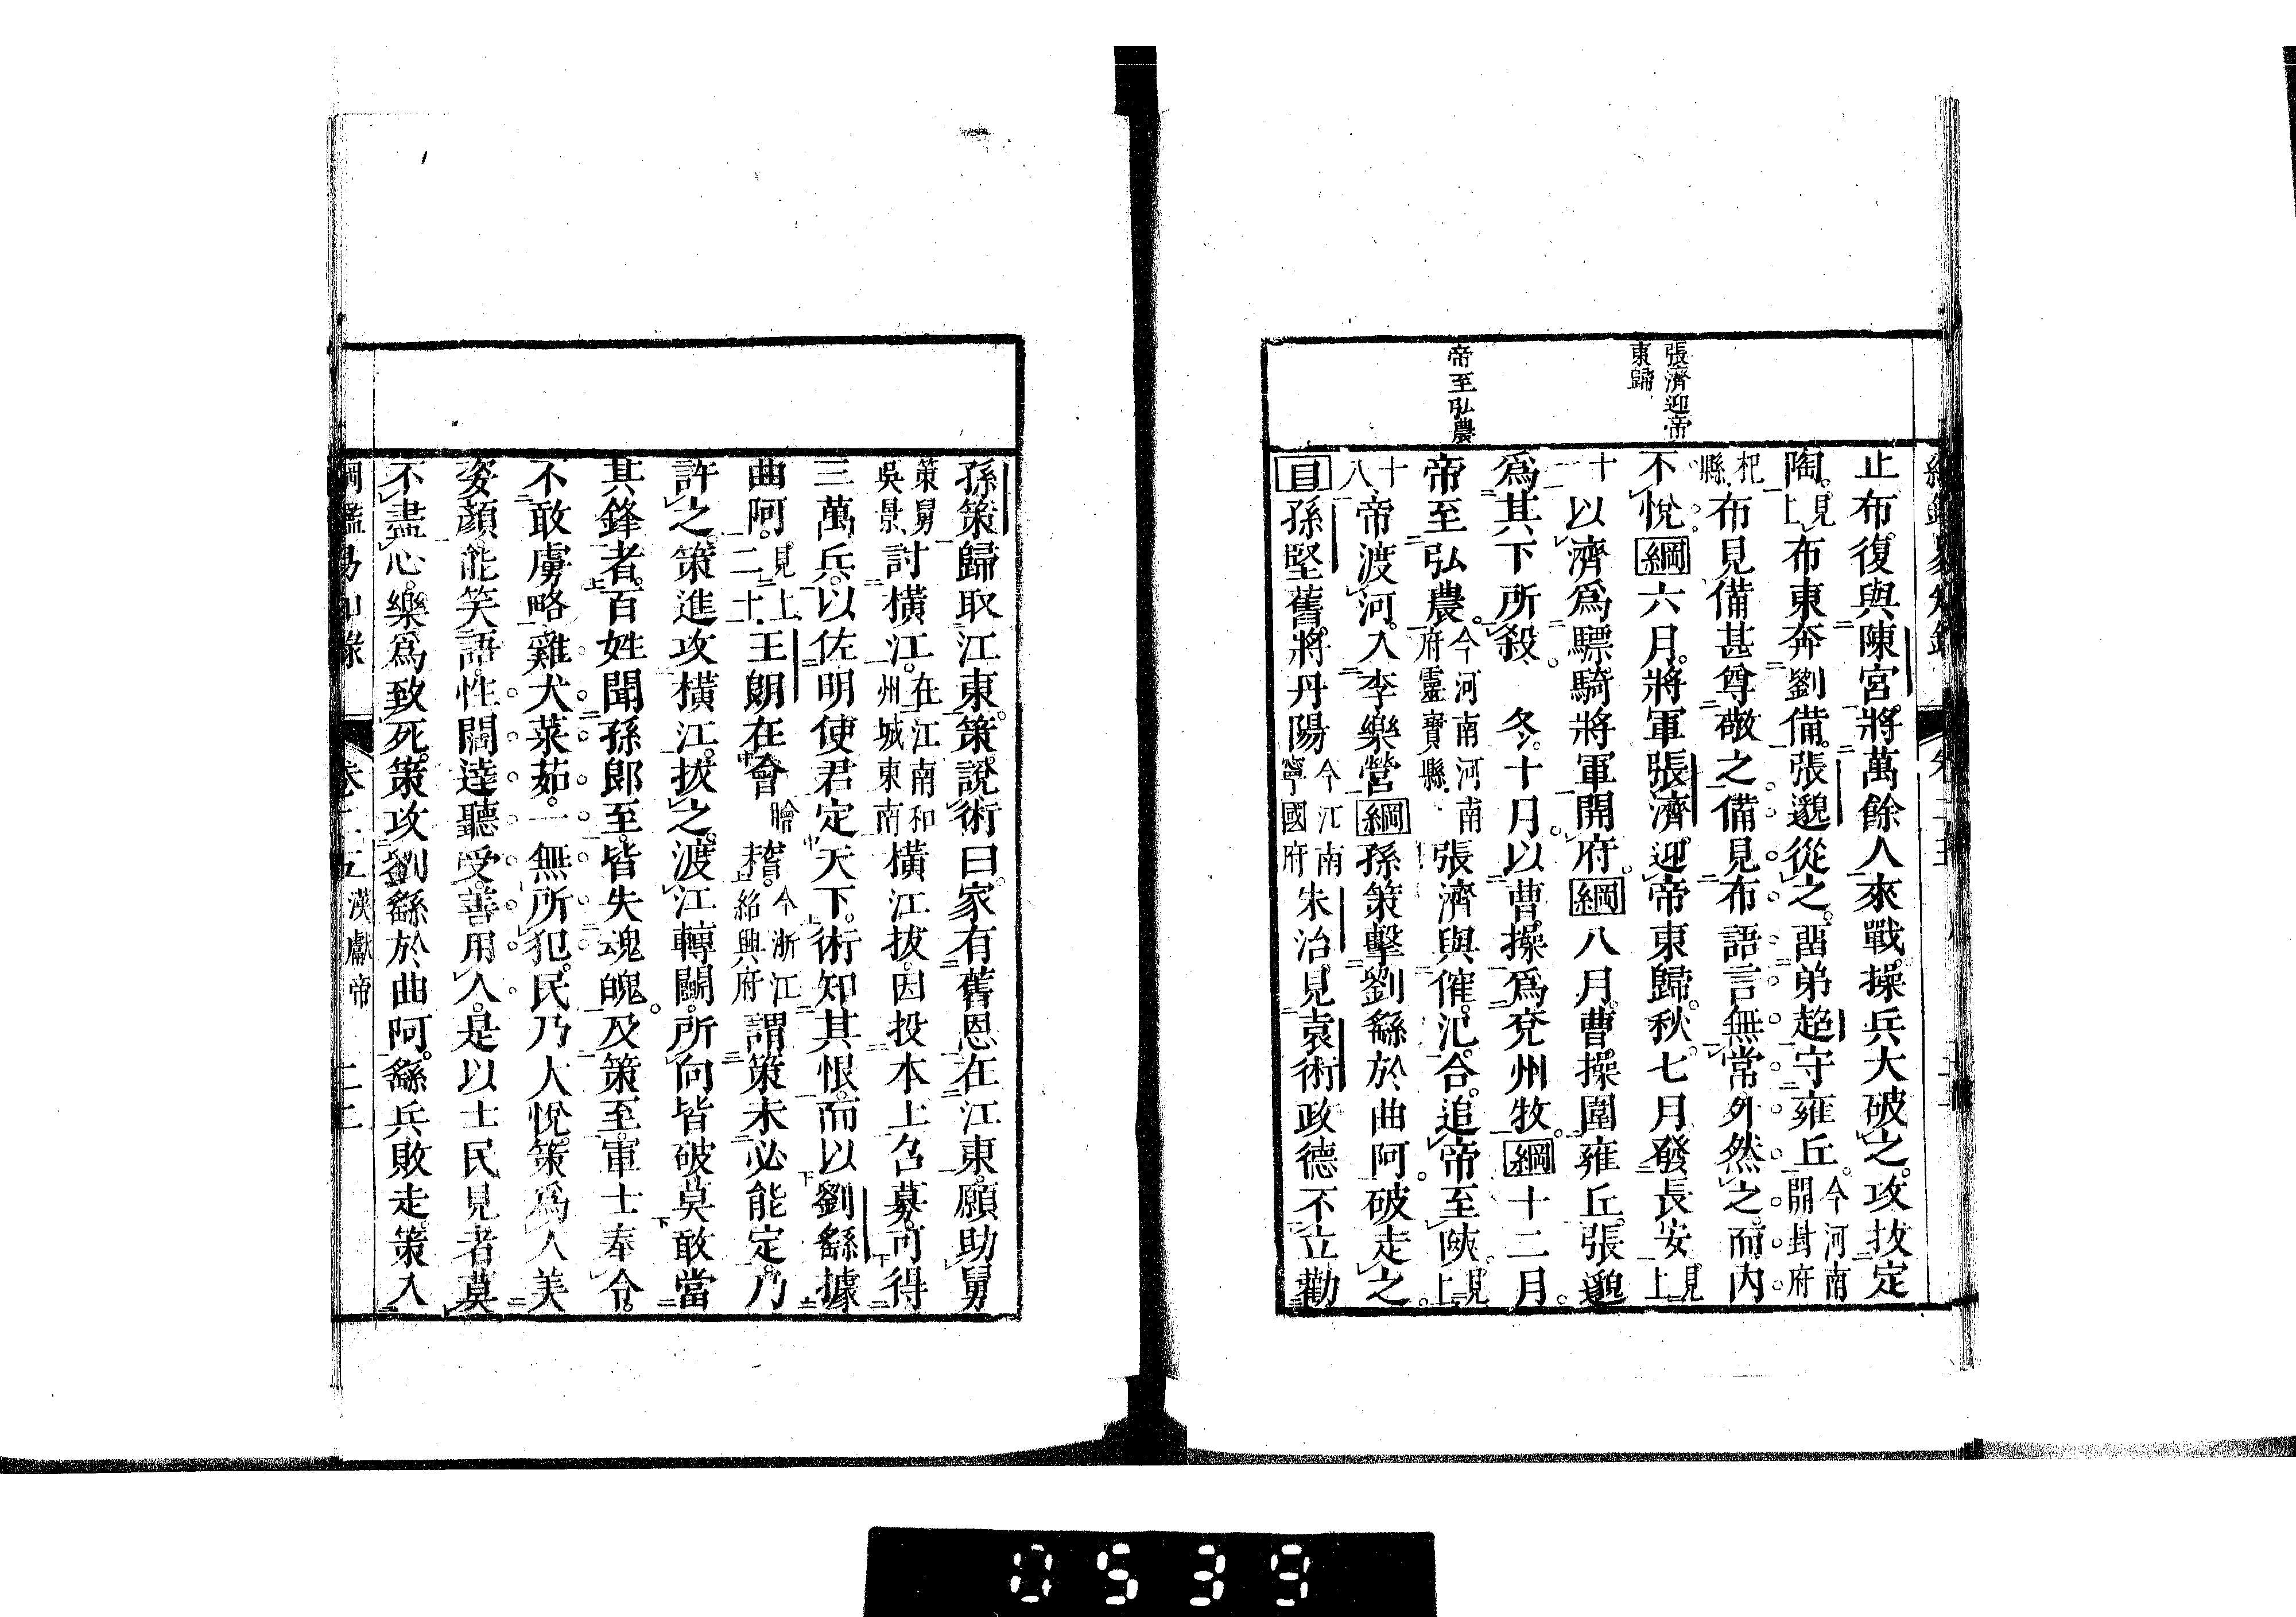 張濟迎帝
東歸
帝至弘農
止布復與陳宮將萬餘人來戰操兵大破之攻拔定
陶見上布東奔劉備張邈從之留弟超守雍丘今河南開封府
杞縣布見備甚尊敬之備見布語言無常外然之而內
不悅綱六月將軍張濟迎帝東歸秋七月發長安見上
十二以濟爲驃騎將軍開府綱八月曹操圍雍丘張邈
爲其下所殺 冬十月以曹操爲兗州牧綱十二月
帝至弘農今河南河南府靈寶縣張濟與傕汜合追帝至陝見上二
十八帝渡河入李樂營綱孫策擊劉繇於曲阿破走之
目孫堅舊將丹陽今江南寧國府朱治見袁術政德不立勸
孫策歸取江東策說術曰家有舊恩在江東願助舅
策舅吳景討橫江在江南和州城東南橫江拔因投本土召募可得
三萬兵以佐明使君定天下術知其恨而以劉繇據
曲阿見上二十王朗在會膾稽今浙江紹興府謂策未必能定乃
許之策進攻橫江拔之渡江轉鬭所向皆破莫敢當
其鋒者百姓聞孫郎至皆失魂魄及策至軍士奉令
不敢虜略雞犬菜茹一無所犯民乃大悅策爲人美
姿顔能笑語性闊達聽受善用人是以士民見者莫
不盡心樂爲致死策攻劉繇於曲阿繇兵敗走策入
綱鑑易知錄 卷二五 漢獻帝 二二
0539